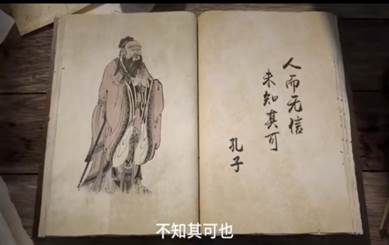 人而无信
未知其可
孔子
不知其可也